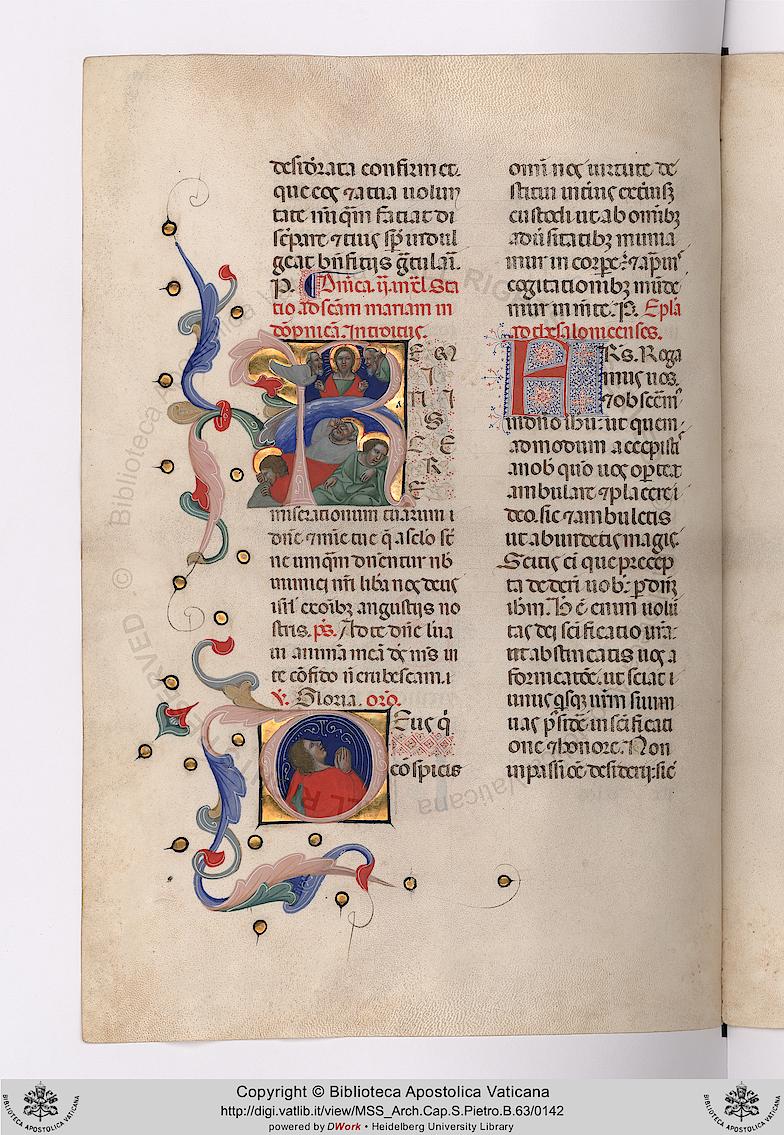 desiderata confirmet.
que eos ⁊ a tua uolun
tate nūqͣm faciat di
screpare ⁊ eius sp̄ indul
geat bn̄ficijs gr̄tulari.
P. Dn̄ica .ij. in xl. Sta
tio ad scām mariam in
dōpnica. Introitus.
REMI
NI
S
CE
RE
miserationum tuarum
dn̄e ⁊ mīe tue q̄ a sclo st̄
ne umqͣm dn̄entur nb̄
inimici nr̄i libͣa nos deus
isrl̄ ex om̄ibꝫ angustijs no
stris. ps̄. Ad te dn̄e leua
ui animā meā dſ ms̄ in
te cōfido nō erubescam.
℣. Gloria. orō.
Deus q̄
cōspicis
omi nos uirtute de
stitui interius exteriusꝫ
custodi ut ab om̄ibꝫ
aduersitatibꝫ munia
mur in corpe: ⁊ a prauis
cogitationibꝫ munde
mur in mēte. P. Epl̄a
ad thesalonicenses.
FRs. Roga
mus uos.
⁊ obsecm̄
in dn̄o ih̄u: ut quem
admodum accepistis
a nob quō uos oporteat
ambulare ⁊ placere
deo. sic ⁊ ambuletis
ut abundetis magis.
Scitis eī que precep
ta dederī uob: p dn̄m
ih̄m. Hec ē enim uolū
tas dei scīficatio urā:
ut abstineatis uos a
fornicatōe. ut sciat
unusqsqꝫ urm̄ suum
uas pside in scīficati
one ⁊ honore. Non
in passiōe desiderij: sic
Copyright © Biblioteca Apostolica Vaticana
http://digi.vatlib.it/view/MSS_Arch.Cap.S.Pietro.B.63/0142
powered by DWork • Heidelberg University Library
BIBLIOTECA APOSTOLICA VATICANA
BIBLIOTECA APOSTOLICA VATICANA